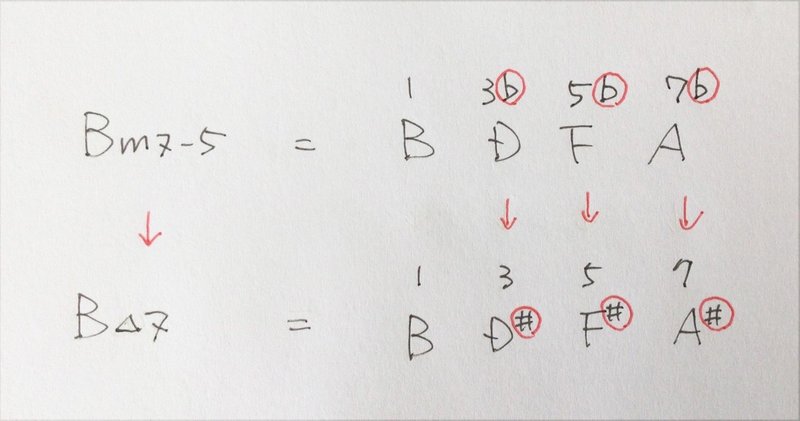 1 3b 5b 7b
Bm7-5 = B D F A
↓ ↓ ↓ ↓
1 3 5 7
B△7 = B D# F# A#